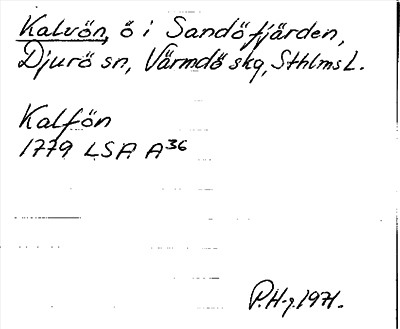 Kalvön, ö i Sandöfjärden,
Djurö sn, Värmdö skg, Sthlms L.
Kalfön
1779 LSA A36
P.H-g. 1971.